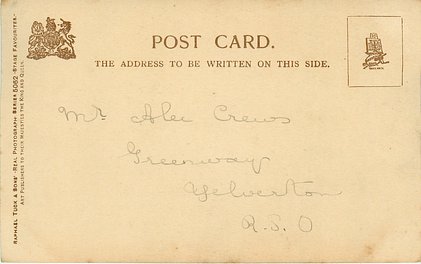 POST CARD.
THE ADDRESS TO BE WRITTEN ON THIS SIDE.
Mr Alec Crews
Greenway
Yelverton
R.S.O
RAPHAEL TUCK & SONS' "REAL PHOTOGRAPH" SERIES 5062 "STAGE FAVOURITES"
ART PUBLISHERS TO THEIR MAJESTIES THE KING AND QUEEN.